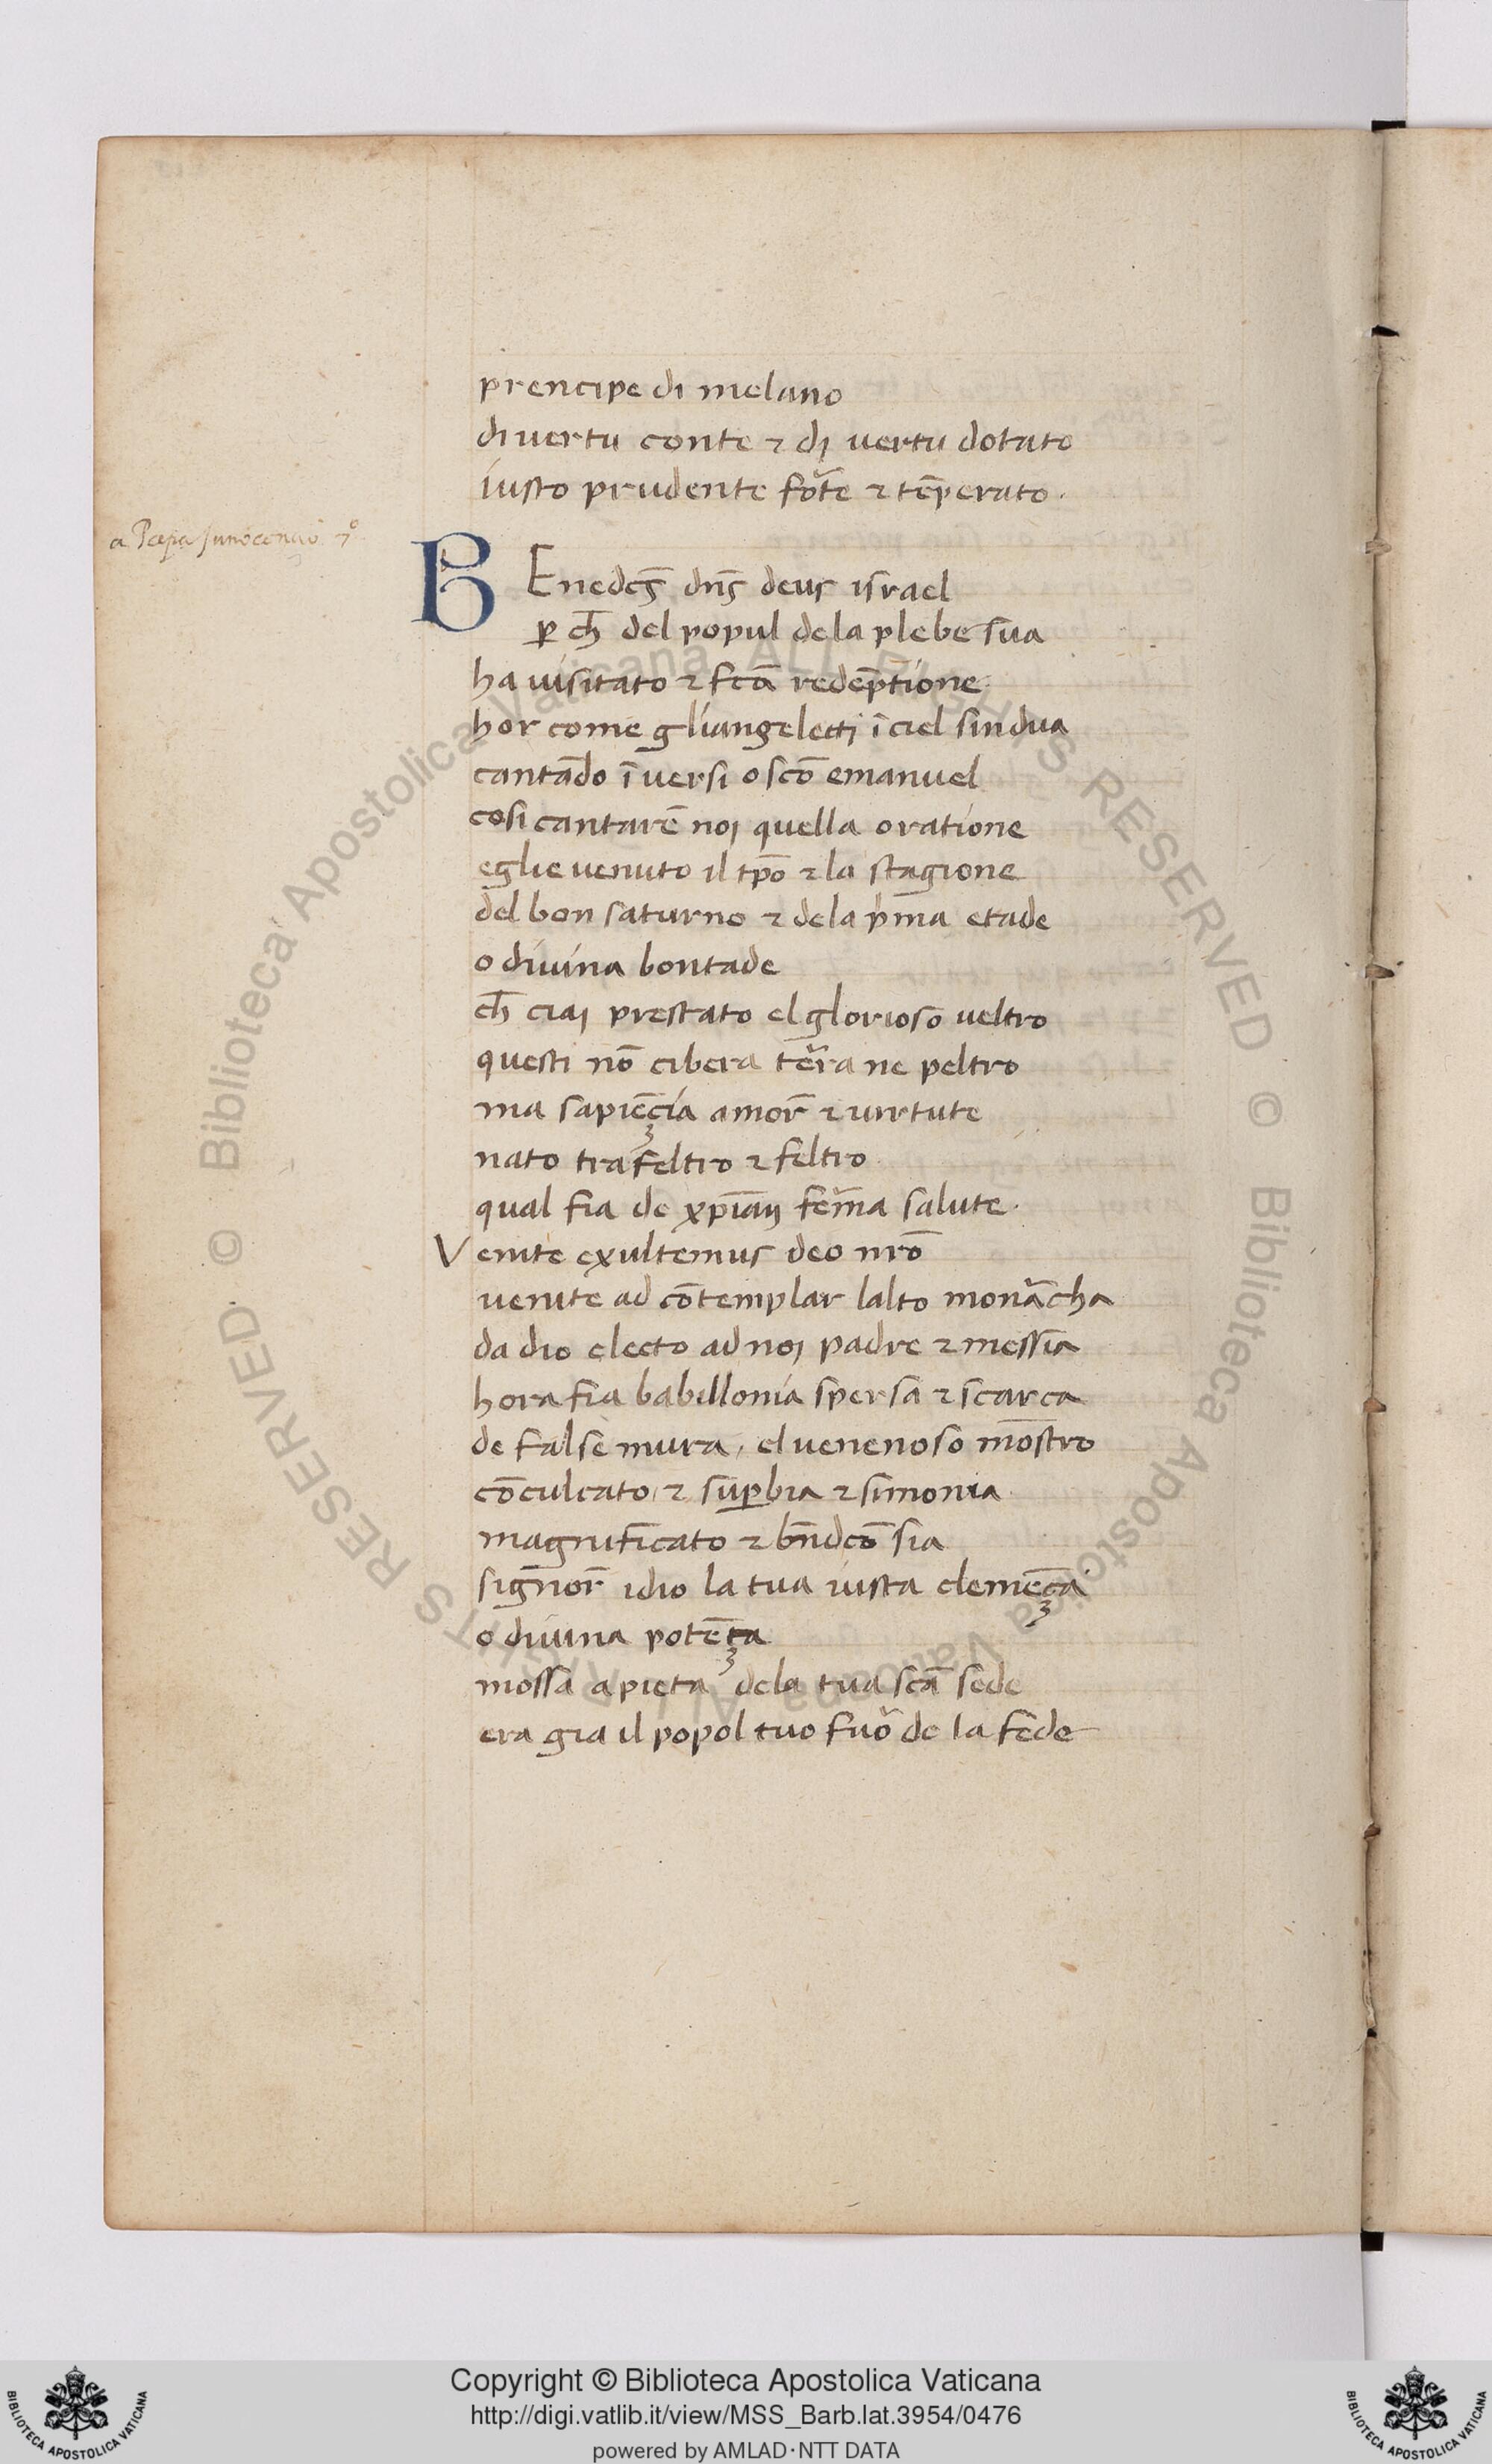 prencipe di melano
di uertu conte ⁊ dj uertu dotato
iusto prudente fõte ⁊ tẽperato ·
a Papa Innocencio 7°
BEnedcs̄ dns̄ deus israel
ꝑ ch̄ del popul dela plebe sua
ha uisitato ⁊ fcā redēptione
hor come gliangelecti ī ciel sindua
cantādo ī uersi o scō emanuel
cosi cantarē noj quella oratione
eglie uenuto il tpō ⁊ la stagione
del bon saturno ⁊ dela pīma etade
o diuina bontade
ch̄ ciaj prestato el glorioso ueltro
questi nō cibera tera ne peltro
ma sapiēçia amor̄ ⁊ uirtute
nato tra feltro ⁊ feltro
qual fia de xp̄ianj fema salute ·
Venite exultemus deo nrō
uenite ad cōtemplar lalto monacha
da dio electo ad noj padre ⁊ messia
hora fia babillonia spersa ⁊ scarca
de false mura, el uenenoso mōstro
cōculcato ⁊ suꝑbia ⁊ simonia
magnificato ⁊ bn̄dcō sia
signor̄ idio la tua iusta clemēça
o diuina potēça
mossa a pieta dela tua scā sede
era gia il popol tuo fuo de la fede
Copyright © Biblioteca Apostolica Vaticana
http://digi.vatlib.it/view/MSS_Barb.lat.3954/0476
powered by AMLAD·NTT DATA
BIBLIOTECA APOSTOLICA VATICANA
BIBLIOTECA APOSTOLICA VATICANA
© Biblioteca Apostolica Vaticana ALL RIGHTS RESERVED © Biblioteca Apostolica Vaticana ALL RIGHTS RESERVED